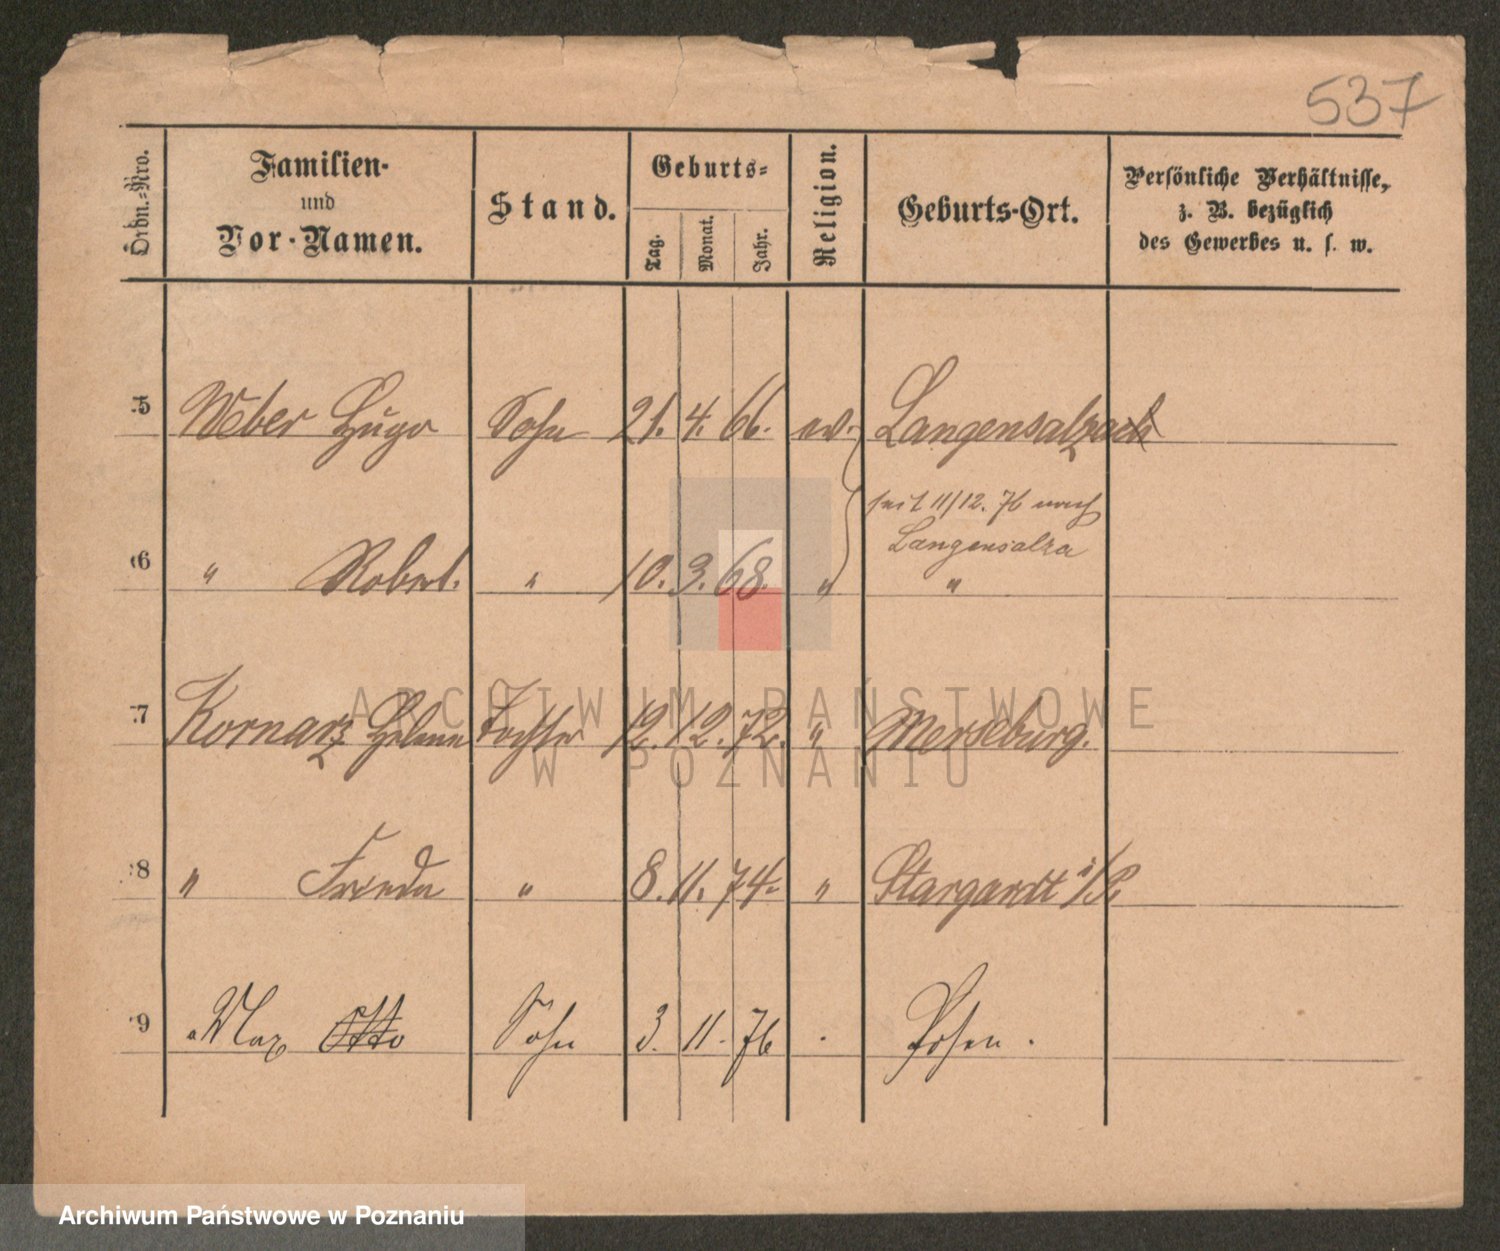 537
Ordn.-Nro.
Familien-
und
Vor-Namen.
Stand.
Geburts-
Tag.
Monat.
Jahr.
Religion.
Geburts-Ort.
Persönliche Verhältnisse,
z. B. bezüglich
des Gewerbes u. s. w.
5 Weber Hugo Sohn 21. 4. 66. ev. Langensalza
seit 11/12. 76 nach
Langensalza
6 " Robert. " 10. 3. 68. " "
7 Kornarz Helene Tochter 12. 12. 72. " Merseburg.
8 " Frieda " 8. 11. 74. " Stargardt i/P.
9 " Max Otto Sohn 3. 11. 76 . Posen.
ARCHIWUM PAŃSTWOWE
W POZNANIU
Archiwum Państwowe w Poznaniu